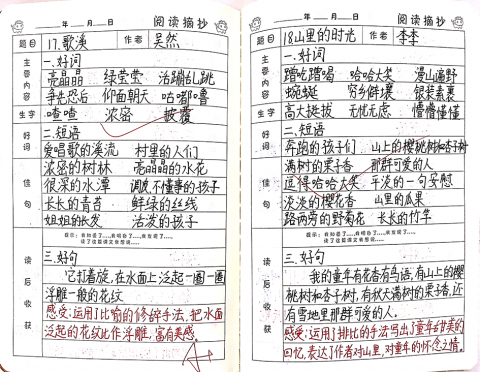 ___年___月___日
阅读摘抄
题目 17.歌溪 作者 吴然
主要内容
一.好词
亮晶晶 绿莹莹 活蹦乱跳
争先恐后 仰面朝天 咕嘟噜
生字
喳喳 浓密 披覆
好词佳句
二.短语
爱唱歌的溪流 村里的人们
浓密的树林 亮晶晶的水花
很深的水潭 调皮不懂事的孩子
长长的青苔 鲜绿的丝线
姐姐的长发 活泼的孩子
读后收获
三.好句
它打着旋,在水面上泛起一圈一圈
浮雕一般的花纹
感受:运用了比喻的修辞手法,把水面
泛起的花纹比作浮雕,富有美感。
___年___月___日
阅读摘抄
题目 18山里的时光 作者 李李
主要内容
一.好词
蹭吃蹭喝 哈哈大笑 漫山遍野
蜿蜒 穷乡僻壤 银装素裹
生字
高大挺拔 无忧无虑 懵懵懂懂
好词佳句
二.短语
奔跑的孩子们 山上的樱桃树和杏子树
满树的栗子香 那群可爱的人
逗得哈哈大笑 平淡的一句安慰
淡淡的樱花香 山里的瓜果
路两旁的野菊花 长长的竹竿
读后收获
三.好句
我的童年有花香有鸟语,有山上的樱
桃树和杏子树,有秋天满树的栗子香,还
有雪地里那群可爱的人。
感受:运用了排比的手法写出了童年甜美的
回忆,表达了作者对山里,对童年的怀念之情。